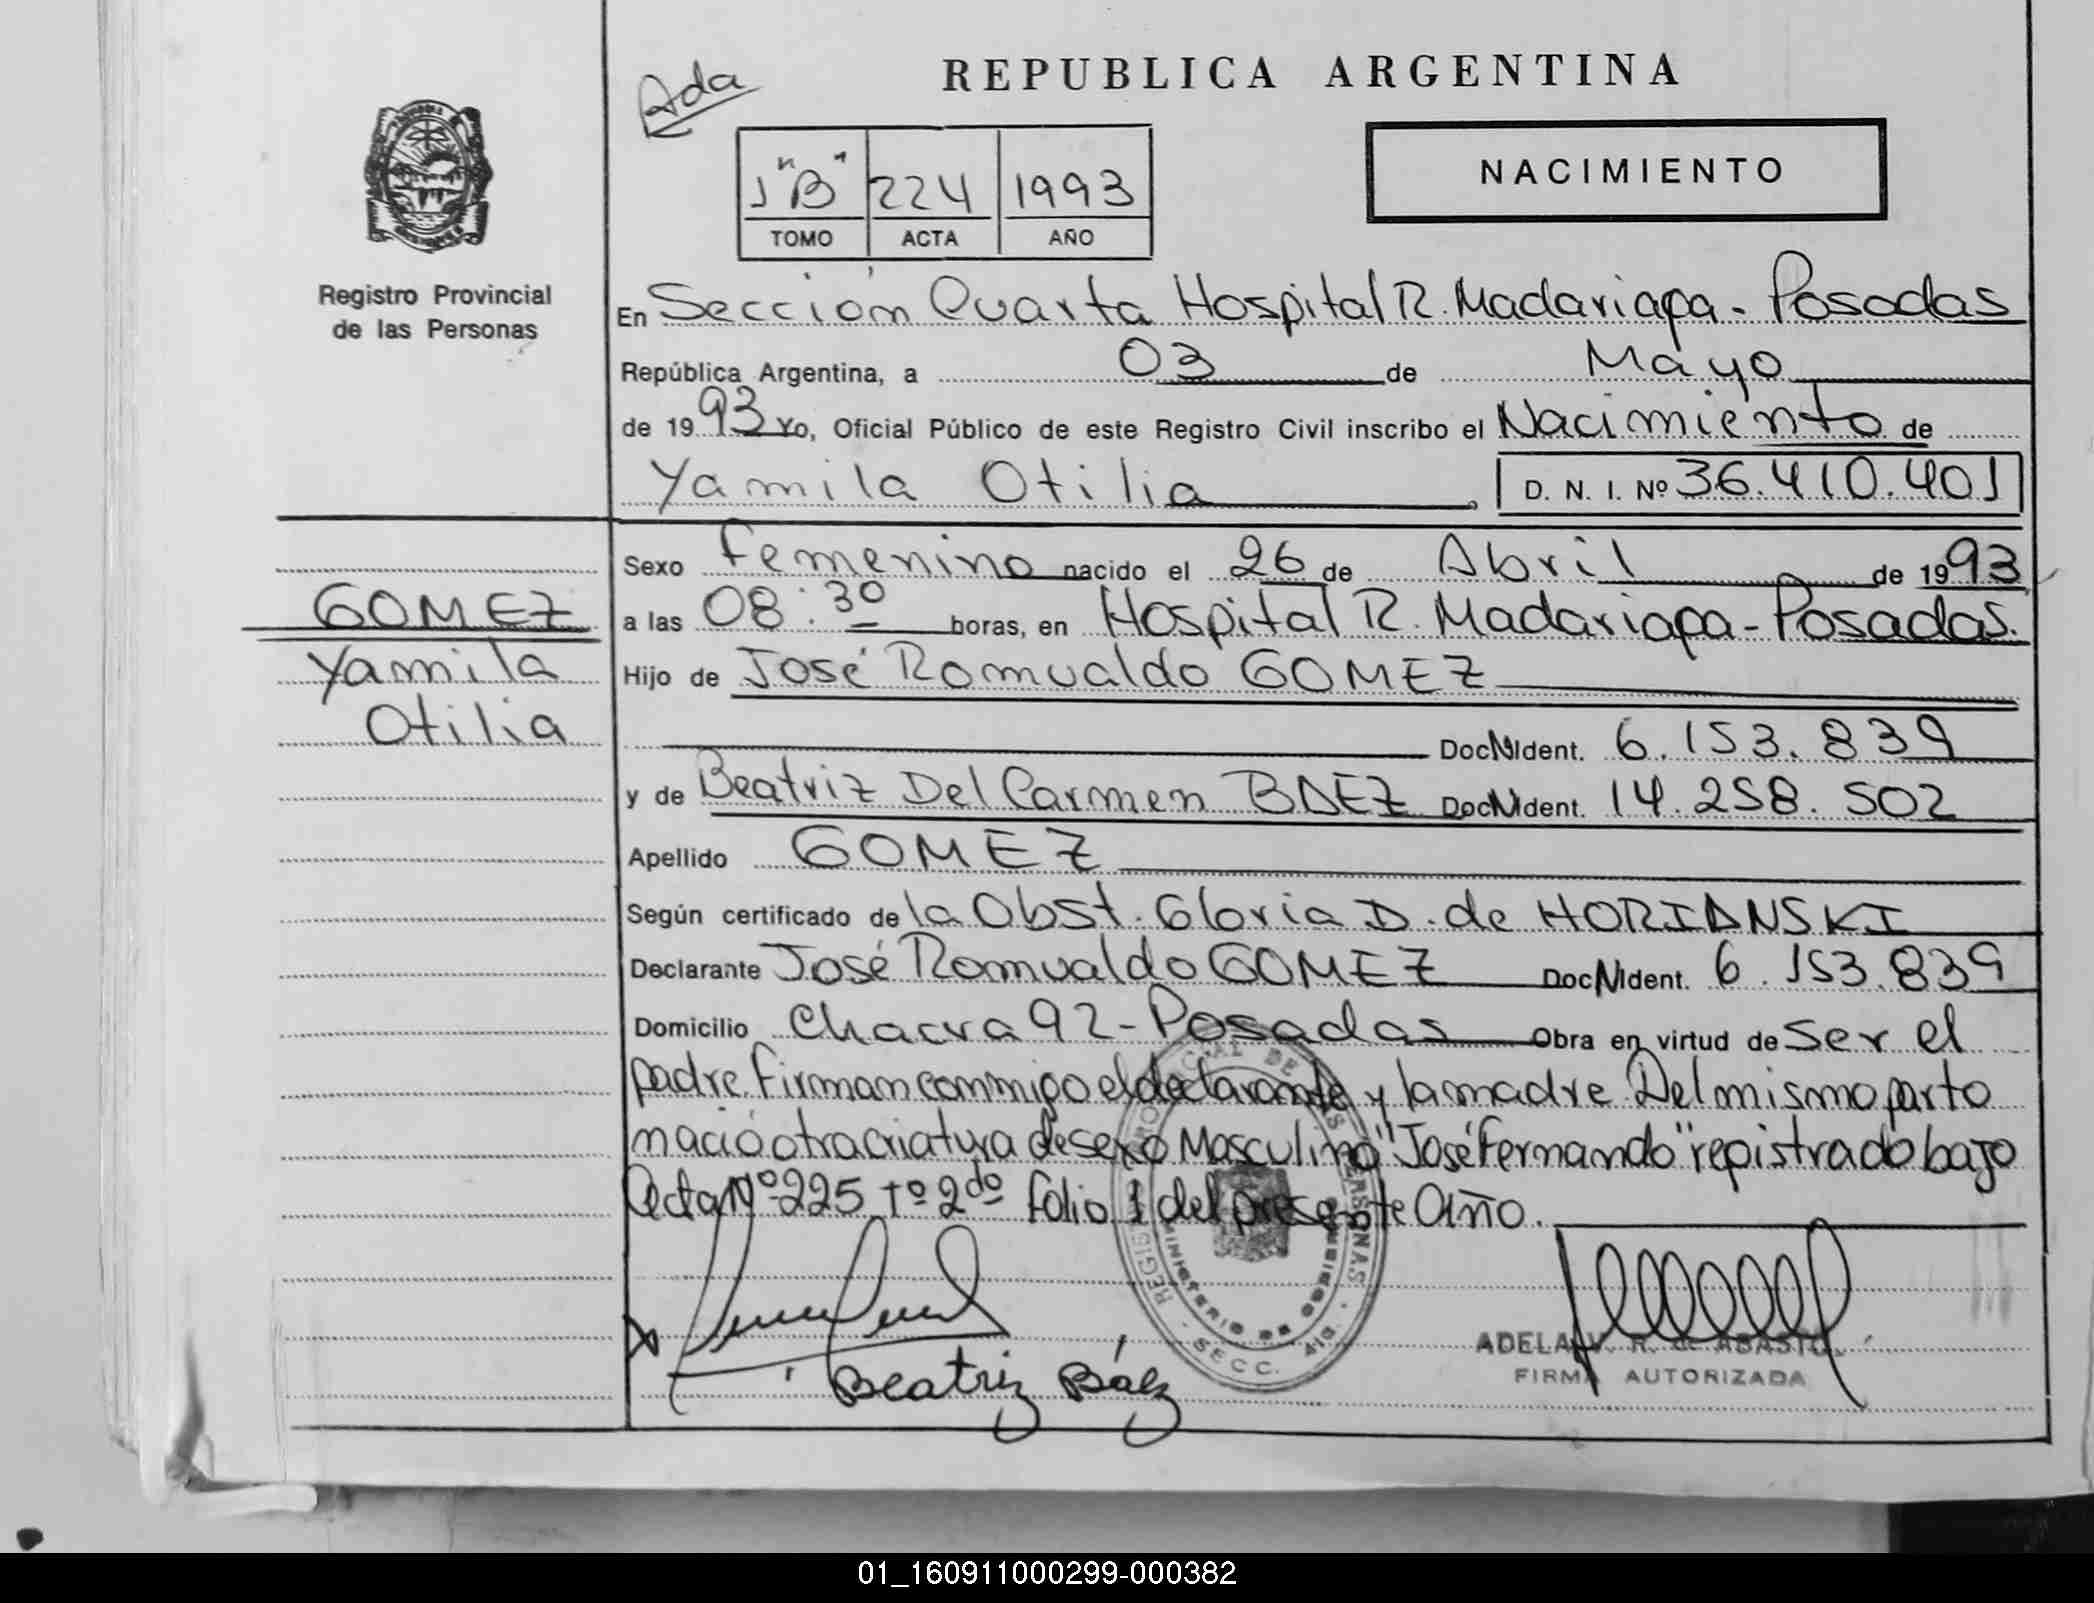 Ada
REPUBLICA ARGENTINA
NACIMIENTO
1 "B" 224 1993
TOMO ACTA AÑO
Registro Provincial
de las Personas
En Sección Cuarta Hospital R. Madariaga - Posadas
República Argentina, a 03 de Mayo
de 1993 Yo, Oficial Público de este Registro Civil inscribo el Nacimiento de
Yamila Otilia, D. N. I. Nº 36.410.401
Sexo Femenino nacido el 26 de Abril de 1993
a las 08:30 horas, en Hospital R. Madariaga - Posadas.
Hijo de José Romualdo GOMEZ
Doc N Ident. 6.153.839
y de Beatriz Del Carmen BAEZ Doc N Ident. 14.258.502
Apellido GOMEZ
Según certificado de la Obst. Gloria D. de HORIANSKI
Declarante José Romualdo GOMEZ Doc N Ident. 6.153.839
Domicilio Chacra 92 - Posadas Obra en virtud de Ser el
padre. Firman conmigo el declarante y la madre. Del mismo parto
nació otra criatura de sexo Masculino "José Fernando" registrado bajo
Acta Nº 225 tº 2do folio 1 del presente Año.
GOMEZ
Yamila
Otilia
Beatriz Báez
REGISTRO PROVINCIAL DE LAS PERSONAS
MINISTERIO DE GOBIERNO
SECC. 4ta
ADELA V. R. de ABASTO
FIRMA AUTORIZADA
01_160911000299-000382